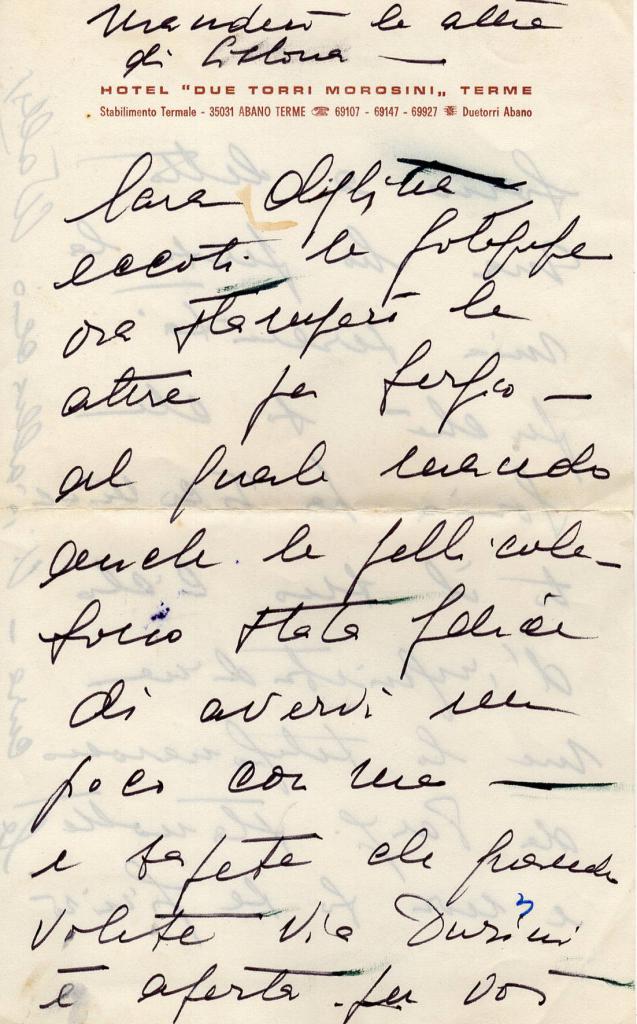 Manderò le altre
di Lisbona —
HOTEL "DUE TORRI MOROSINI„ TERME
Stabilimento Termale - 35031 ABANO TERME ☎ 69107 - 69147 - 69927 Duetorri Abano
Cara
eccoti le fotografie
ora stamperò le
altre per Sergio —
al quale mando
anche le pellicole —
Sono stata felice
di avervi un
poco con me —
e sapete che quando
volete Via Durini
è aperta per voi